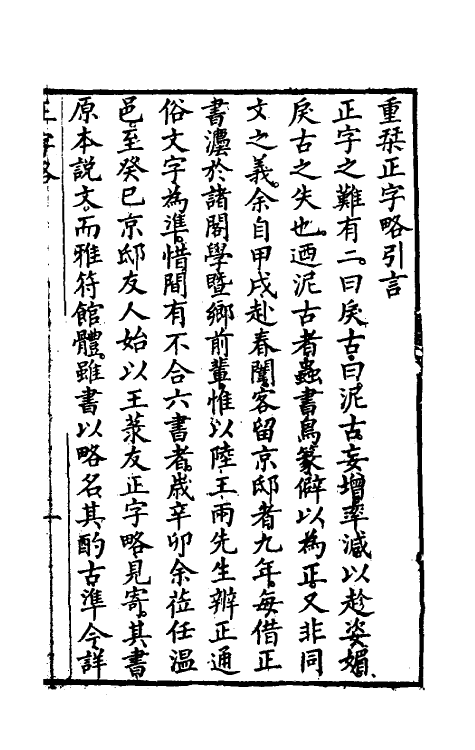 重栞正字略引言
正字之難有二。曰戾古。曰泥古。妄增率減以趁姿媚、
戾古之失也。迺泥古者蟲書鳥篆僻以為正。又非同
文之義。余自甲戌赴春闈客留京邸者九年。每借正
書灋於諸閣學暨鄉前輩。惟以陸王兩先生辨正通
俗文字為準。惜間有不合六書者。歲辛卯余莅任温
邑。至癸巳京邸友人始以王菉友正字略見寄。其書
原本說文。而雅符館體。雖書以略名其酌古準今詳
正字略
一